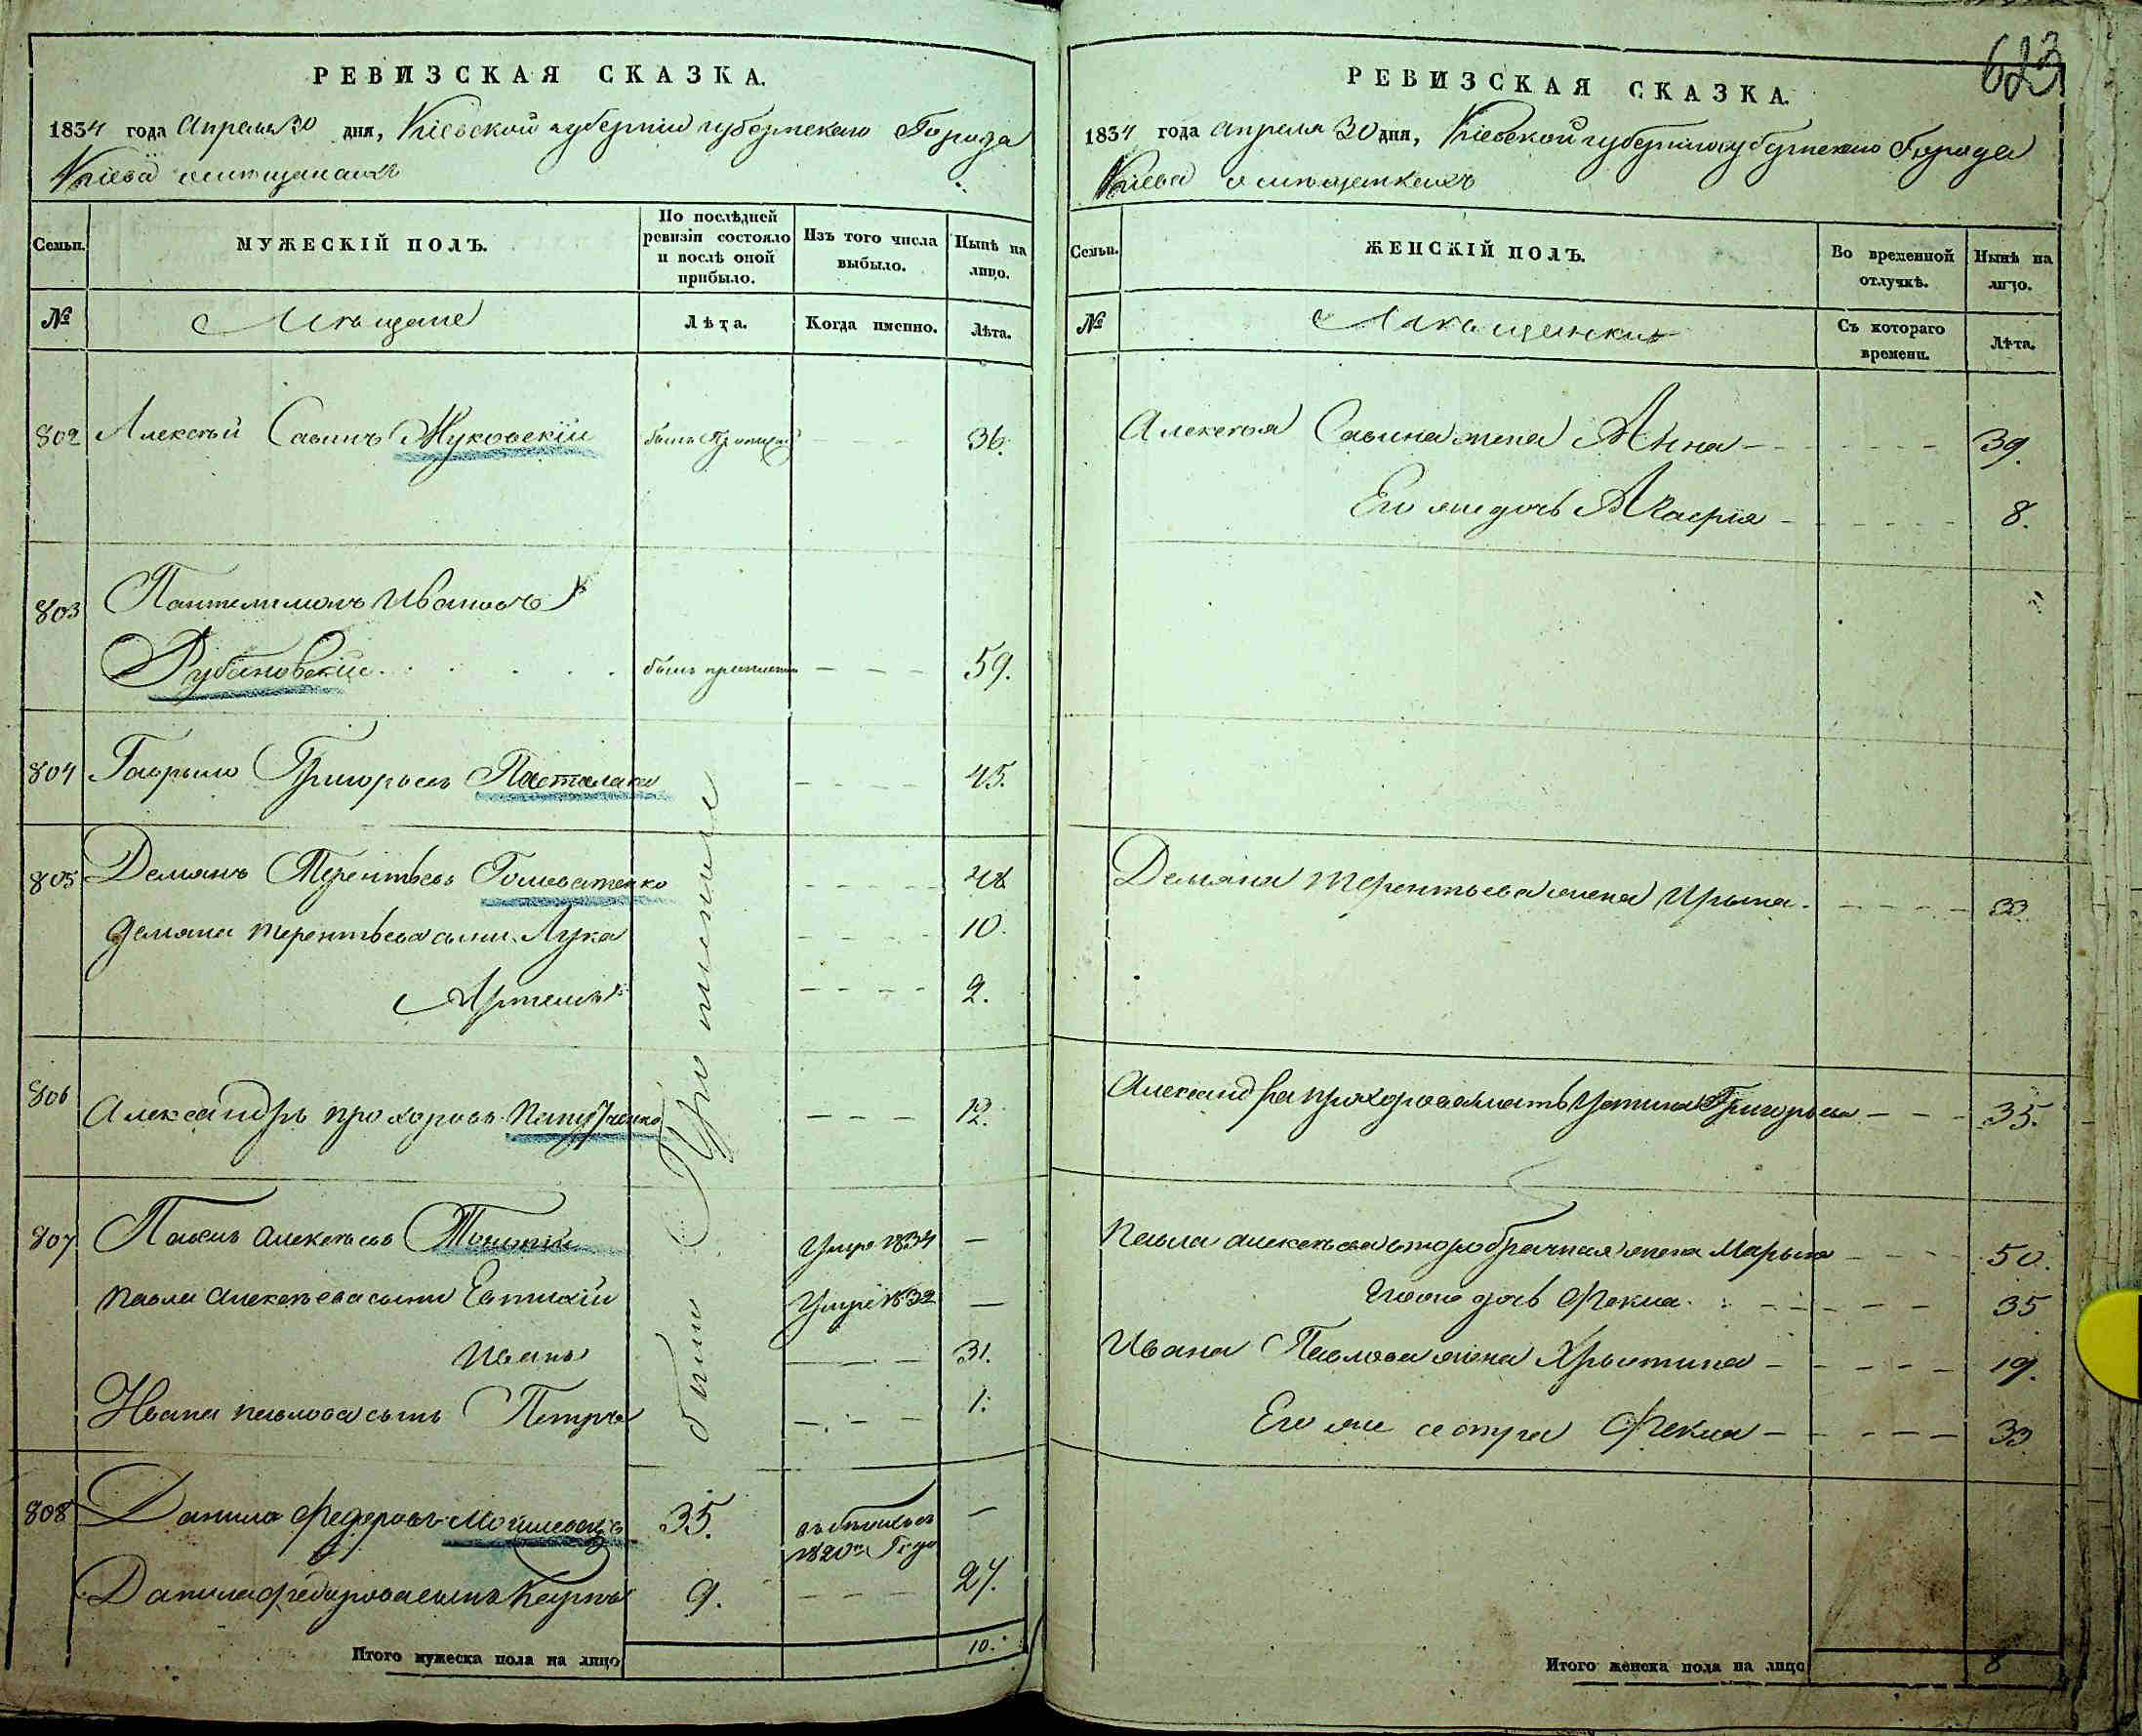 РЕВИЗСКАЯ СКАЗКА.
1834 года Апреля 30 дня, Кіевской губерніи губернскаго Города
Кіева о мещанахъ
Семьи.
МУЖЕСКІЙ ПОЛЪ.
По послѣдней ревизіи состояло и послѣ оной прибыло.
Изъ того числа выбыло.
Нынѣ на лицо.
№
Мѣщане
Лѣта.
Когда именно.
Лѣта.
802 Алексѣй Савинъ Жуковскій былъ 36.
803 Пантелимонъ Ивановъ
Рубановскій былъ 59.
804 Гаврыло Григорьевъ 45.
805 Демянъ Терентьевъ 48
Демяна Терентьева сыни Лука 10.
Артемъ 2.
были Пропис
806 Александръ Прохоровъ 12.
807 Павелъ Алексѣевъ Умре 1834 —
Павла Алексѣева сыни Евтихій Умре 1832 —
Иванъ 31.
Ивана Павлова сынъ Петръ 1.
808 Данило Федоровъ 35. 1820 Году —
Данила Федорова сынъ Карпъ 9. 24.
Итого мужеска пола на лицо 10.
623
РЕВИЗСКАЯ СКАЗКА.
1834 года Апреля 30 дня, Кіевской губерніи губернскаго Города
Кіева о мещанкахъ
Семьи.
ЖЕНСКІЙ ПОЛЪ.
Во временной отлучкѣ.
Нынѣ на лицо.
№
Мѣщанки
Съ котораго времени.
Лѣта.
Алексѣя Савина жена Анна 39.
Его же дочь 8.
Демяна Терентьева жена Ирына 33.
Александра Прохорова мать Устина Григорьева 35.
Павла Алексѣева второбрачная жена Марья 50.
дочь Фекла 35
Ивана Павлова жена Хрыстина 19.
Его же сестра Фекла 33
Итого женска пола на лицо 8